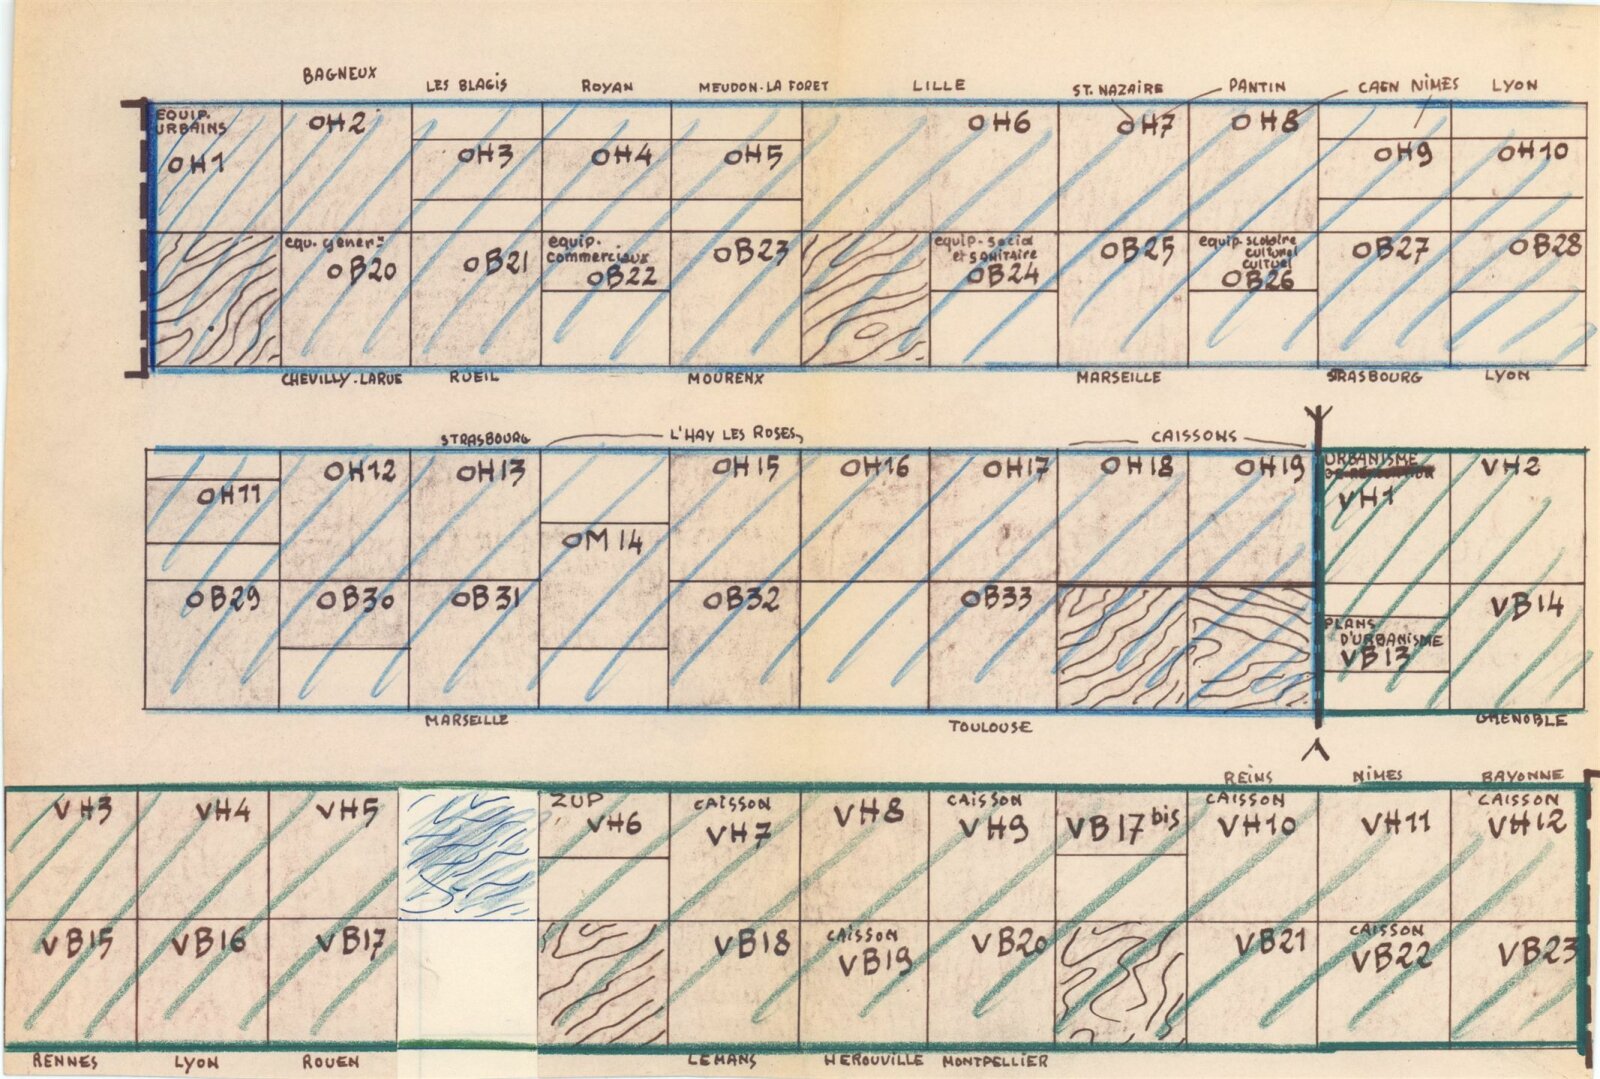 BAGNEUX
LES BLAGIS
ROYAN
MEUDON-LA FORET
LILLE
ST. NAZAIRE
PANTIN
CAEN NÎMES
LYON
EQUIP.
URBAINS
OH1
OH2
OH3
OH4
OH5
OH6
OH7
OH8
OH9
OH10
equ. gener=
OB20
OB21
equip.
commerciaux
OB22
OB23
equip-social
et SANITAIRE
OB24
OB25
equip-scolaire
culturel
cultuel
OB26
OB27
OB28
CHEVILLY-LARUE
RUEIL
MOURENX
MARSEILLE
STRASBOURG
LYON
STRASBOURG
L'HAY LES ROSES
CAISSONS
OH11
OH12
OH13
OM14
OH15
OH16
OH17
OH18
OH19
URBANISME
VH1
VH2
OB29
OB30
OB31
OB32
OB33
PLANS
D'URBANISME
VB13
VB14
MARSEILLE
TOULOUSE
GRENOBLE
REINS
NIMES
BAYONNE
VH3
VH4
VH5
ZUP
VH6
CAISSON
VH7
VH8
CAISSON
VH9
VB17 bis
CAISSON
VH10
VH11
CAISSON
VH12
VB15
VB16
VB17
VB18
CAISSON
VB19
VB20
VB21
CAISSON
VB22
VB23
RENNES
LYON
ROUEN
LE MANS
HEROUVILLE
MONTPELLIER